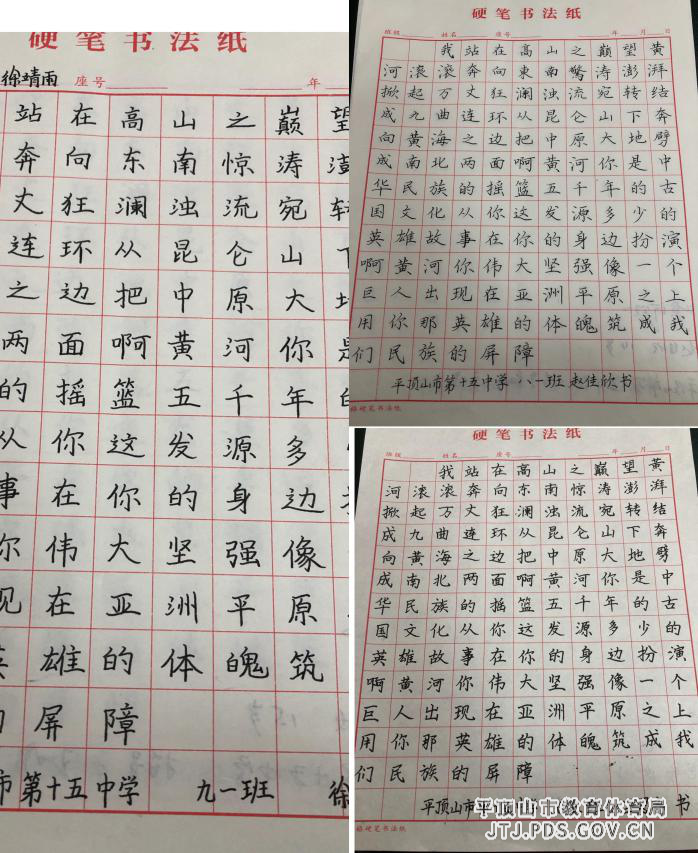 硬笔书法纸
徐靖雨 座号 年
站在高山之巅望
奔向东南惊涛澎
丈狂澜浊流宛转
连环从昆仑山下
之边把中原大地
两面啊黄河你是
的摇篮五千年的
从你这发源多少
事在你的身边扮
你伟大坚强像
现在亚洲平原
英雄的体魄筑
屏障
市第十五中学 九一班 徐
硬笔书法纸
班级 姓名 座号 年 月 日
我站在高山之巅望黄
河滚滚奔向東南驚涛澎湃
掀起万丈狂澜浊流宛转结
成九曲连环从昆仑山下奔
向黄海之边把中原大地劈
成南北两面啊黄河你是中
华民族的摇篮五千年的古
国文化从你这发源多少的
英雄故事在你的身边扮演
啊黄河你伟大坚强像一个
巨人出现在亚洲平原之上
用你那英雄的体魄筑成我
们民族的屏障
平顶山市第十五中学 八一班 赵佳欣书
硬笔书法纸
硬笔书法纸
班级 姓名 座号 年 月 日
我站在高山之巅望黄
河滚滚奔向东南惊涛澎湃
掀起万丈狂澜浊流宛转结
成九曲连环从昆仑山下奔
向黄海之边把中原大地劈
成南北两面啊黄河你是中
华民族的摇篮五千年的古
国文化从你这发源多少的
英雄故事在你的身边扮演
啊黄河你伟大坚强像一个
巨人出现在亚洲平原之上
用你那英雄的体魄筑成我
们民族的屏障
平顶山市 书
硬笔书法纸
平顶山市教育体育局
JTJ.PDS.GOV.CN